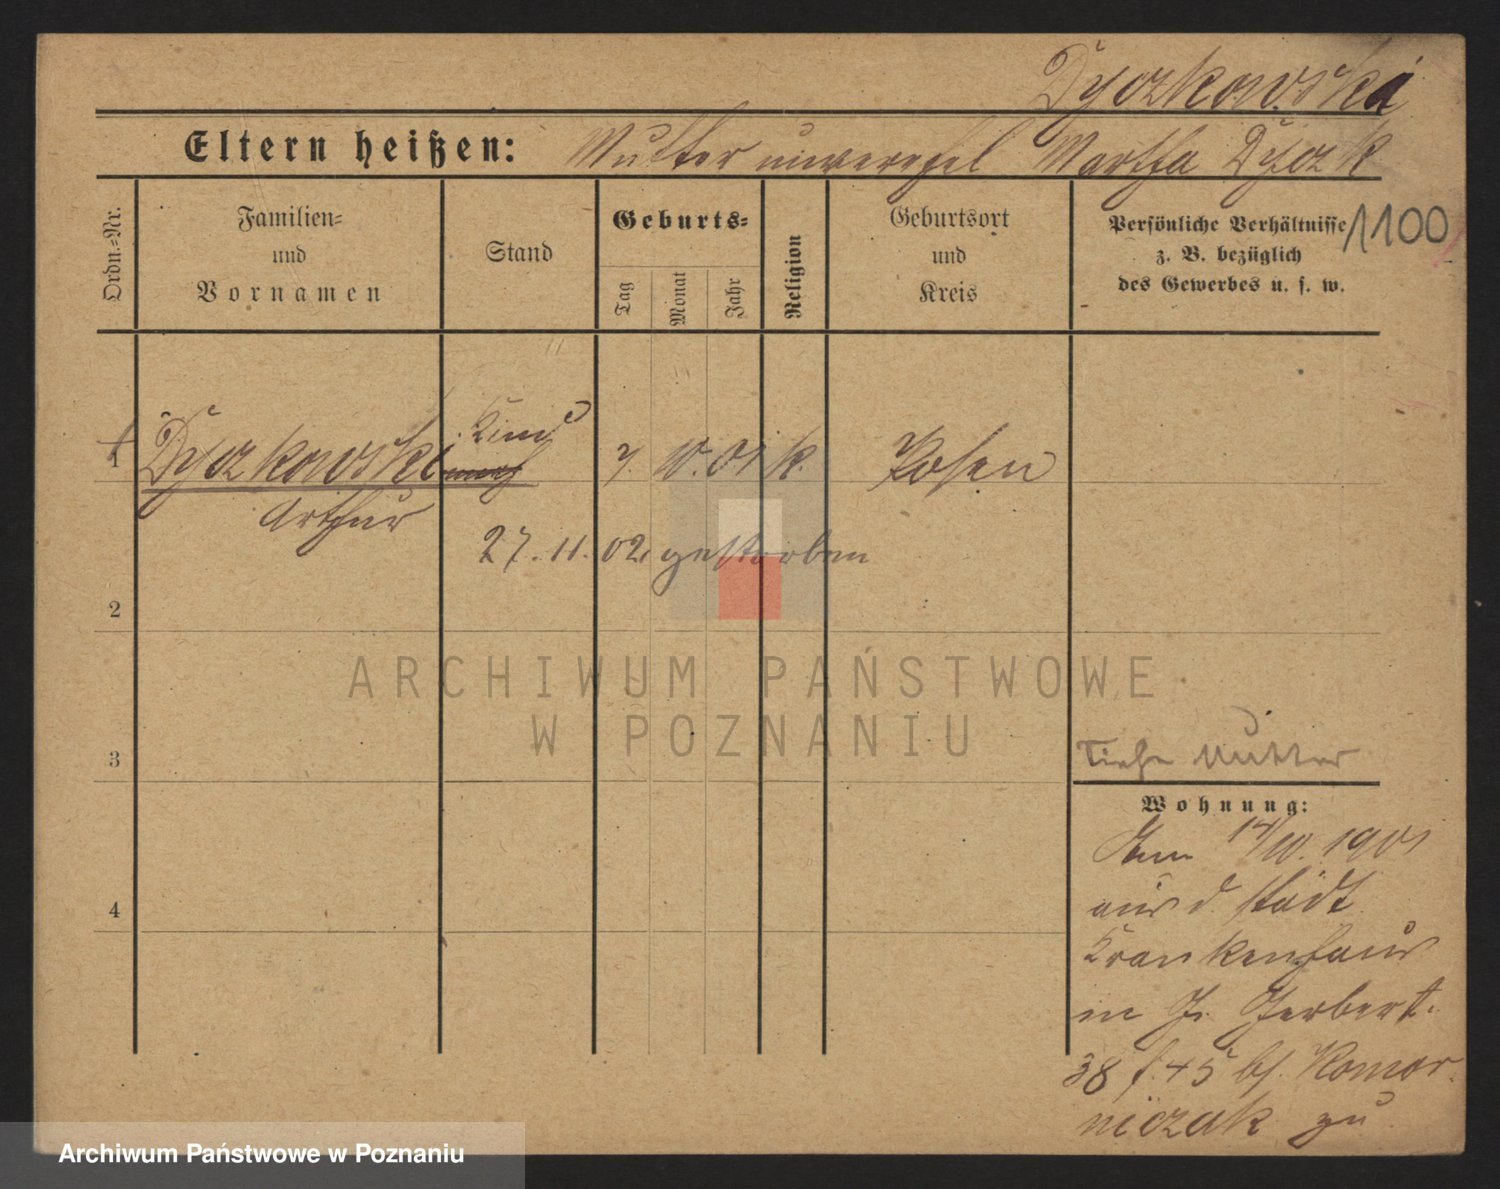 Dyczkowski
Eltern heißen: Mutter unverehel Martha Dyczk
1100
Ordn.-Nr.
Familien-
und
Vornamen
Stand
Geburts-
Tag
Monat
Jahr
Religion
Geburtsort
und
Kreis
Persönliche Verhältnisse
z. B. bezüglich
des Gewerbes u. s. w.
Kind
1 Dyczkowski 7. 10. 01 k. Posen
Arthur
27. 11. 02. gestorben
2
ARCHIWUM PAŃSTWOWE
W POZNANIU
3
Siehe Mutter
Wohnung:
Am 14/10. 1901
aus d. städt
4
Krankenhaus
in J. Jerbert.
38 f. 45 bj. Komor
niczak zu
Archiwum Państwowe w Poznaniu